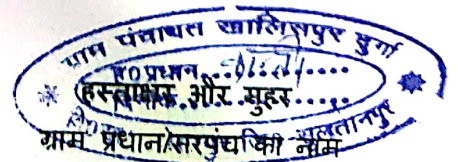 ग्राम पंचायत खालिसपुर दुर्गा
ग्रा0 प्रधान
हस्ताक्षर और मुहर
सुलतानपुर
ग्राम प्रधान/सरपंच का नाम